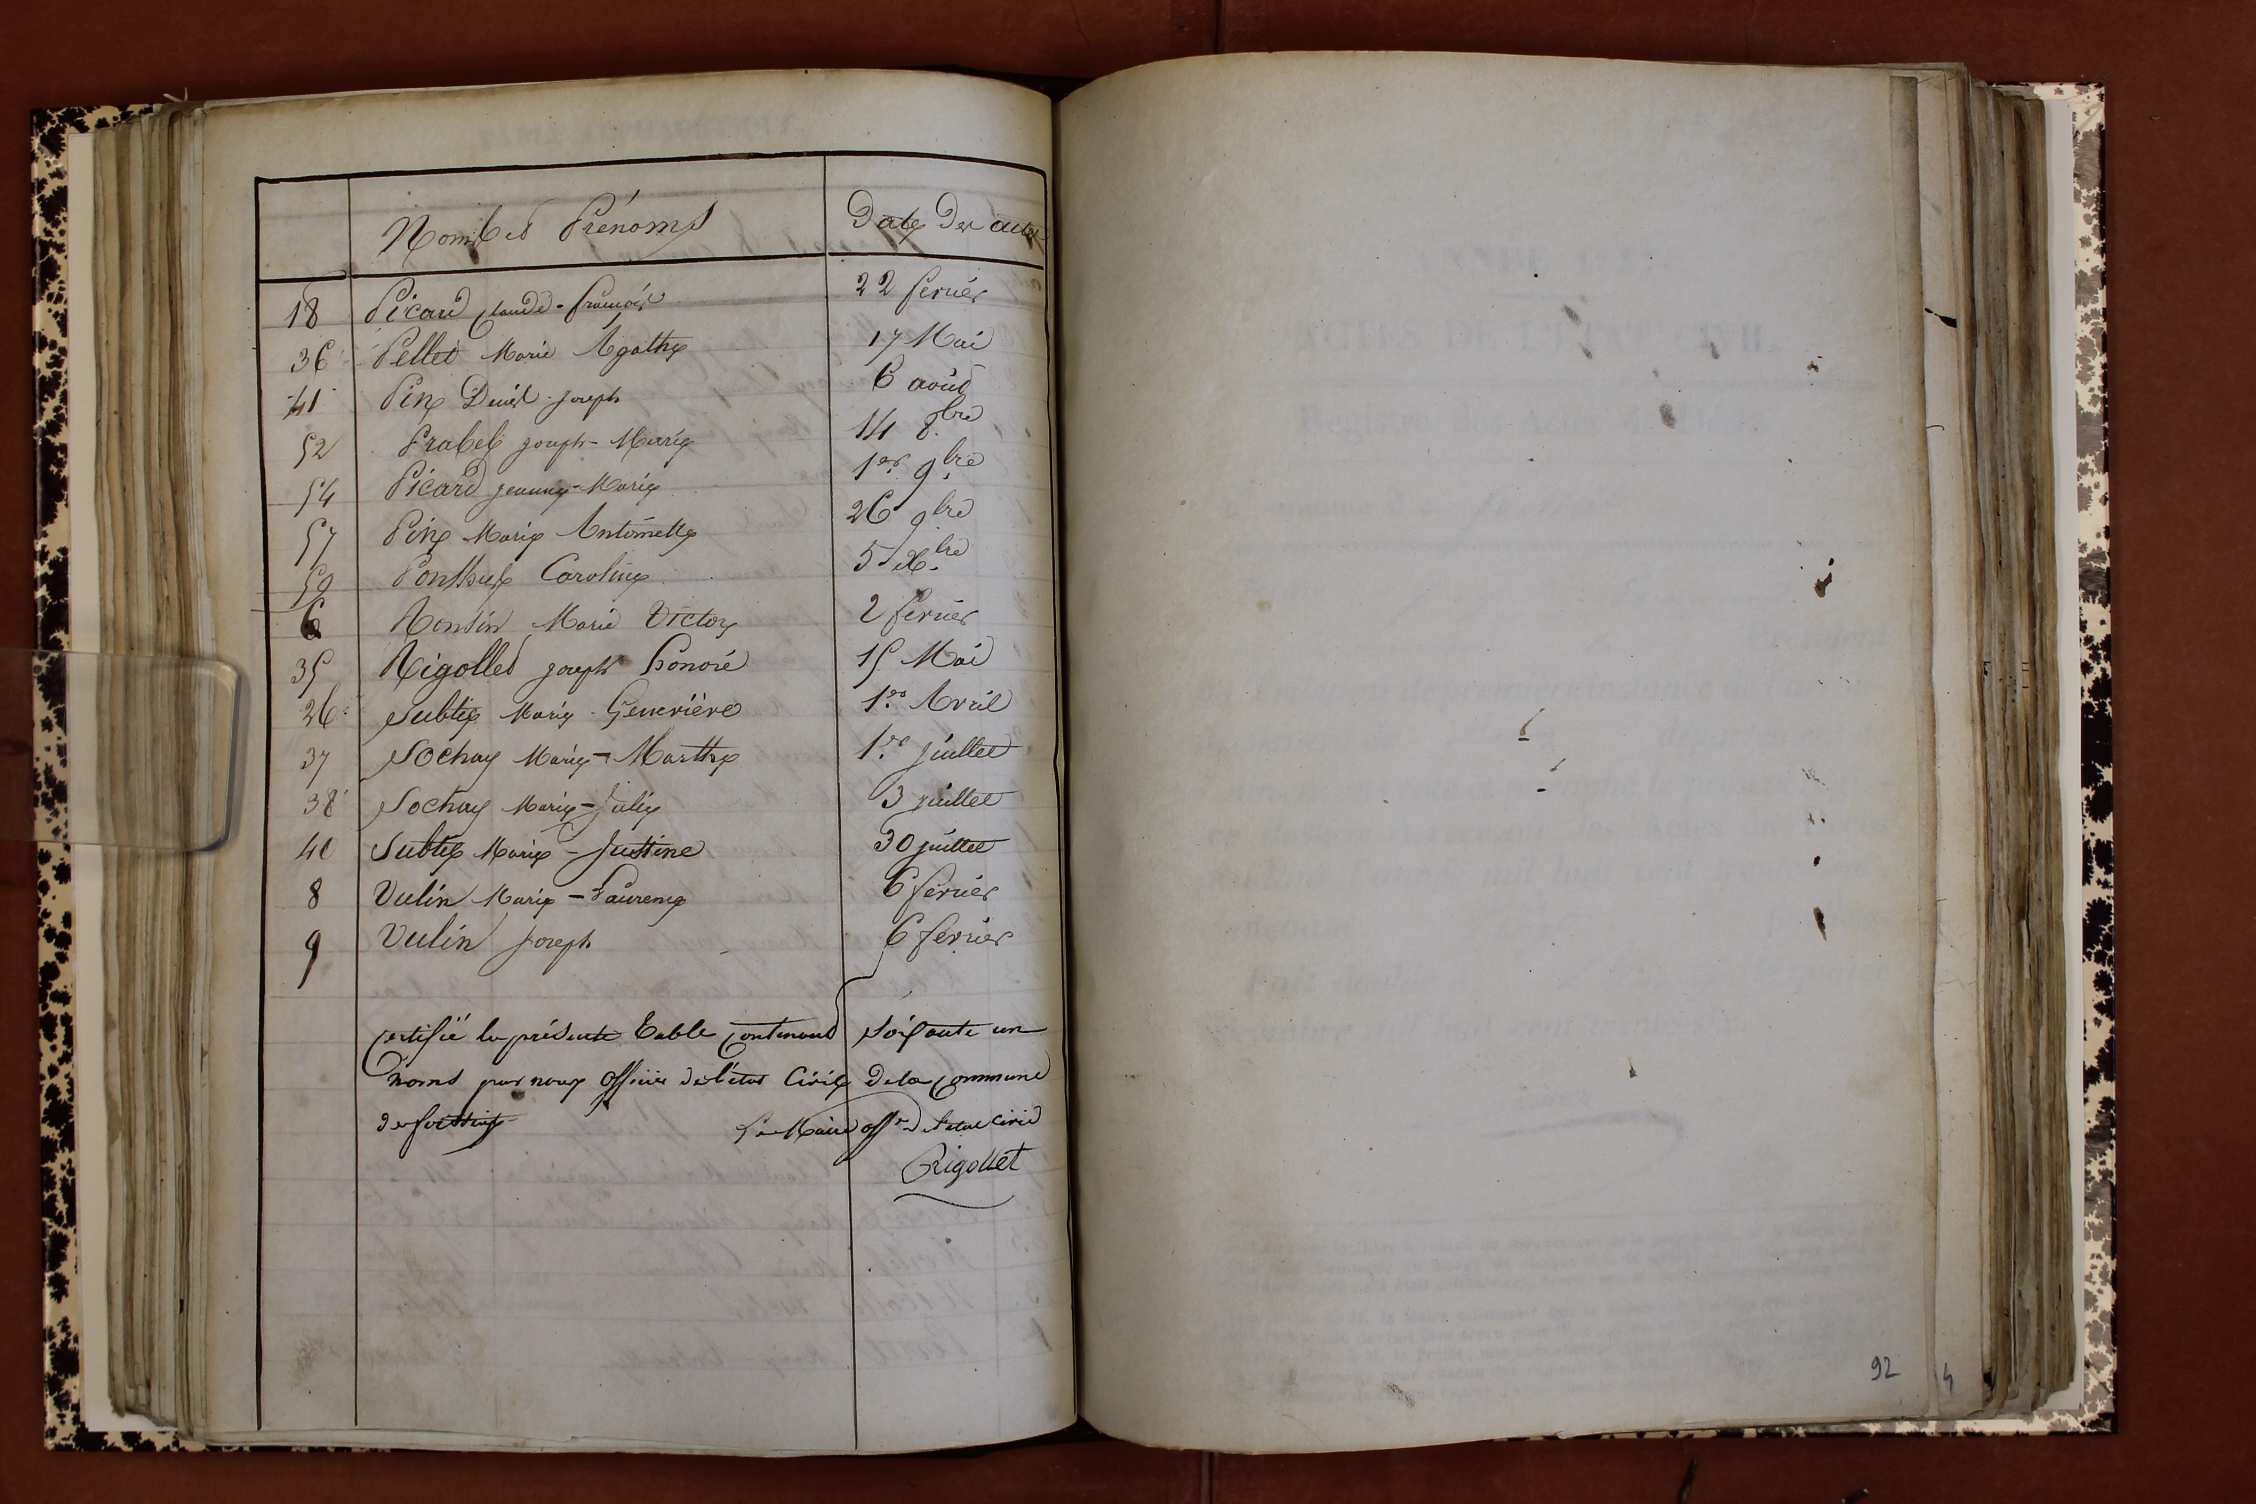 Noms et Prénoms Date des actes
18 Picard Claude-François 22 fevrier
36 Pellet Marie Agathe 17 Mai
41 Pin Denis-Joseph 6 août
52 Prabel Joseph-Marie 14 8.bre
54 Picard Jeanne-Marie 1er 9.bre
57 Pin Marie Antoinette 26 9bre
59 Ponthus Caroline 5 Xbre
6 Rontin Marie Victor 2 fevrier
35 Rigollet Joseph honoré 15 Mai
26 Subtil Marie Geneviève 1er Avril
37 Sochay Marie-Marthe 1er Juillet
38 Sochay Marie-Julie 3 Juillet
40 Subtil Marie-Justine 30 juillet
8 Vulin Marie-Laurence 6 fevrier
9 Vulin Joseph 6 fevrier
Certifié la présente Table contenant Soixante un
noms par nous Officier de l'état Civil de la Commune
de
Le Maire offr de l'état civil
Rigollet
92
4